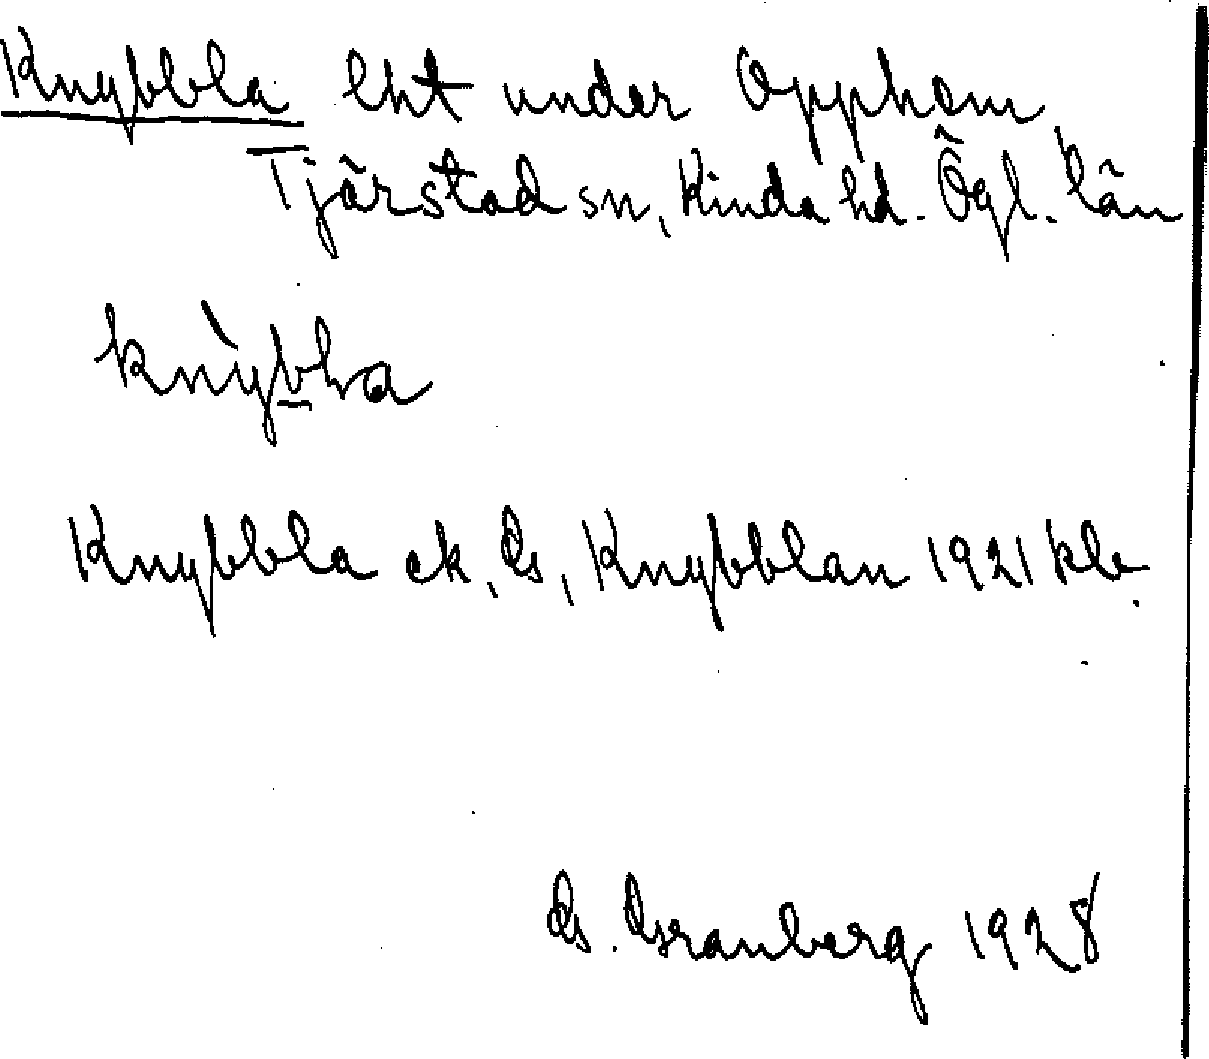 Knybbla lht under Opphem,
Tjärstad sn, Kinda hd. Ögl. län
knỳbla
Knybbla ek, G, Knybblan 1921 kle.
G. Granberg 1928